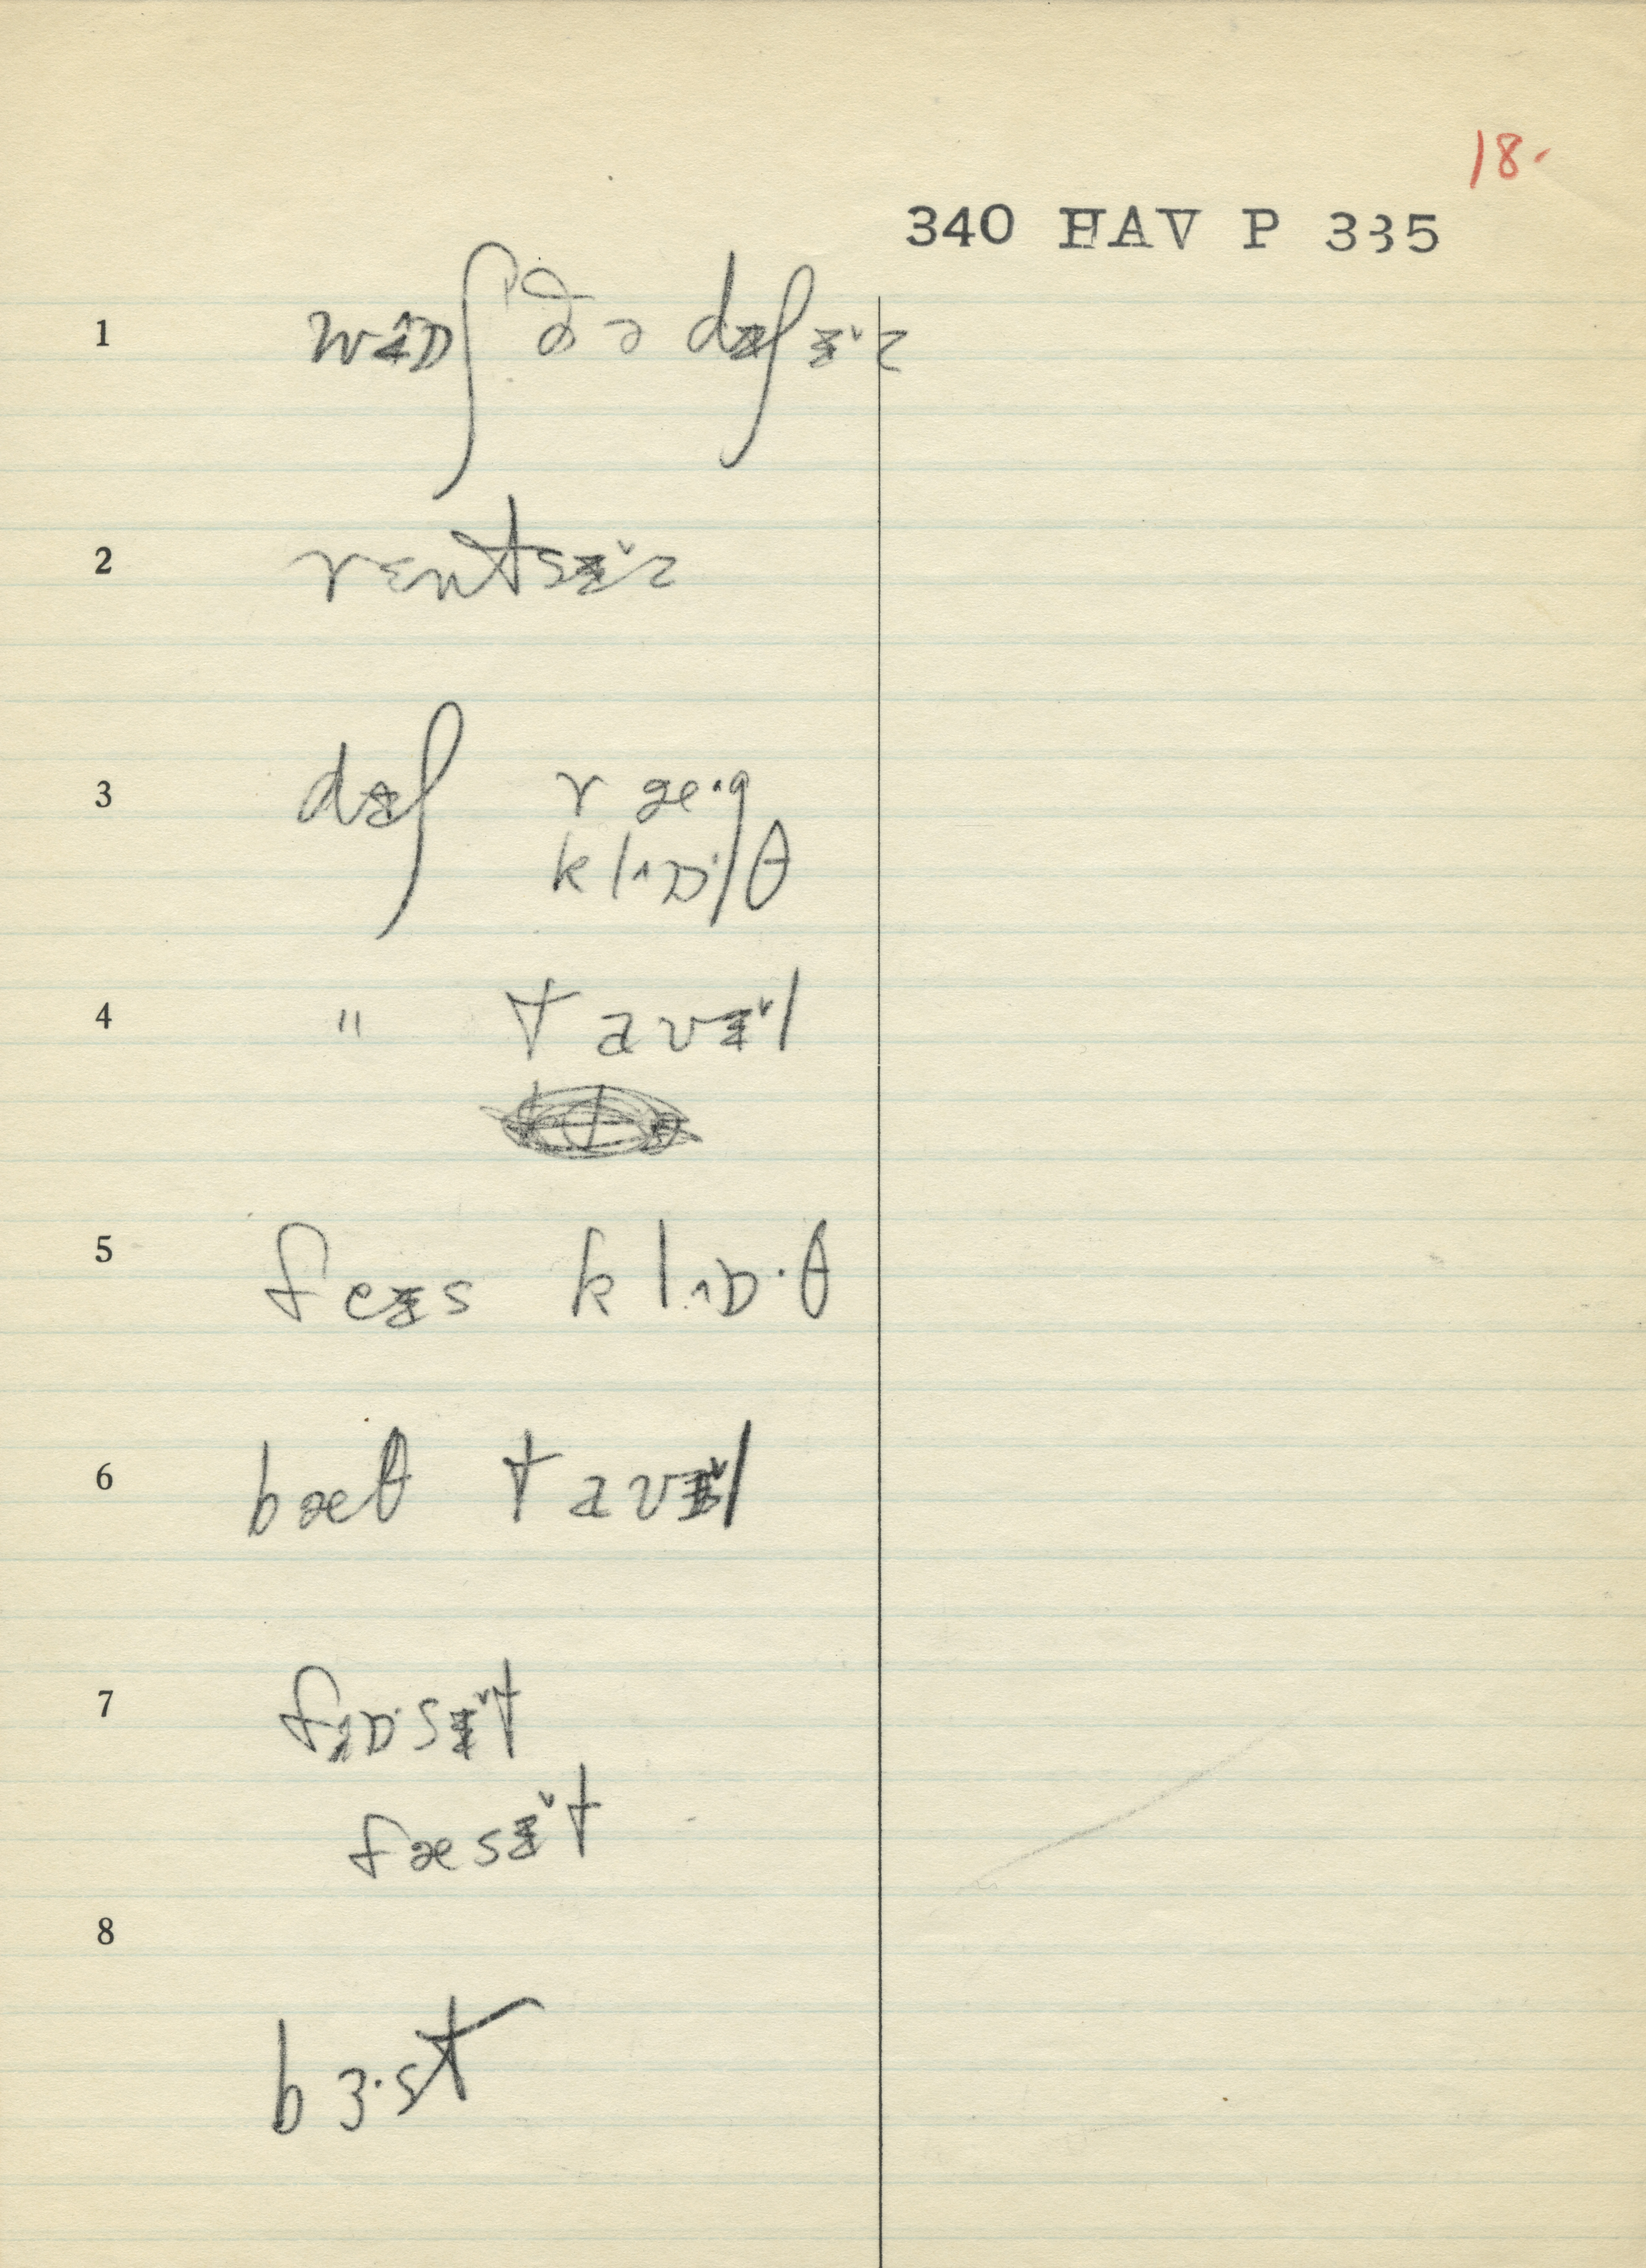 18.
340 HAV P 335
1 wɑɒʃ ðə dɪʃɪ̆z
2 rɛntsɪ̆z
3 dɪʃ ræ·g
klɑɒ·θ
4 " tavɪ̆l
5 feɪs klɑɒ·θ
6 bæθ tavɪ̆l
7 fɑɒ·sɪ̆t
fæsɪ̆t
8
bɜ·st